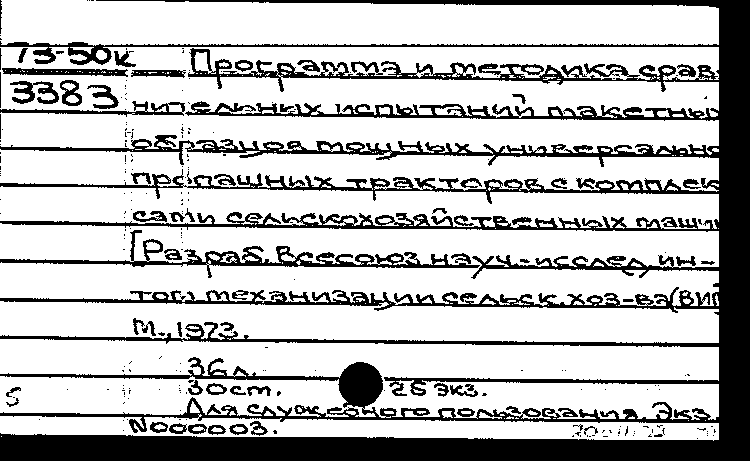 73-50к
3383
Программа и методика срав-
нительных испытаний макетных
образцов мощных универсально-
пропашных тракторов с комплек-
сами сельскохозяйственных машин
[Разраб. Всесоюз. науч.-исслед. ин-
том механизации сельск. хоз-ва (ВИМ
М., 1973.
36 л.
30 см. 25 экз.
Для служебного пользования. Экз.
N000003.
S